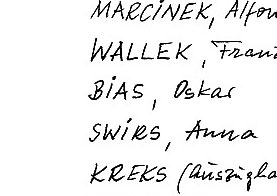 MARCINEK, Alfon
WALLEK, Franz
BIAS, Oskar
SWIRS, Anna
KREKS (Auszügha